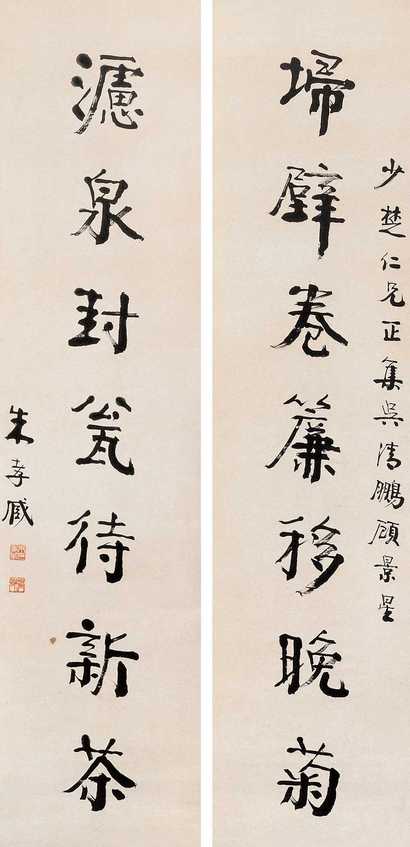 少楚仁兄正集吳清鵬顧景星
埽壁卷簾移晚菊
濾泉封瓮待新茶
朱孝臧